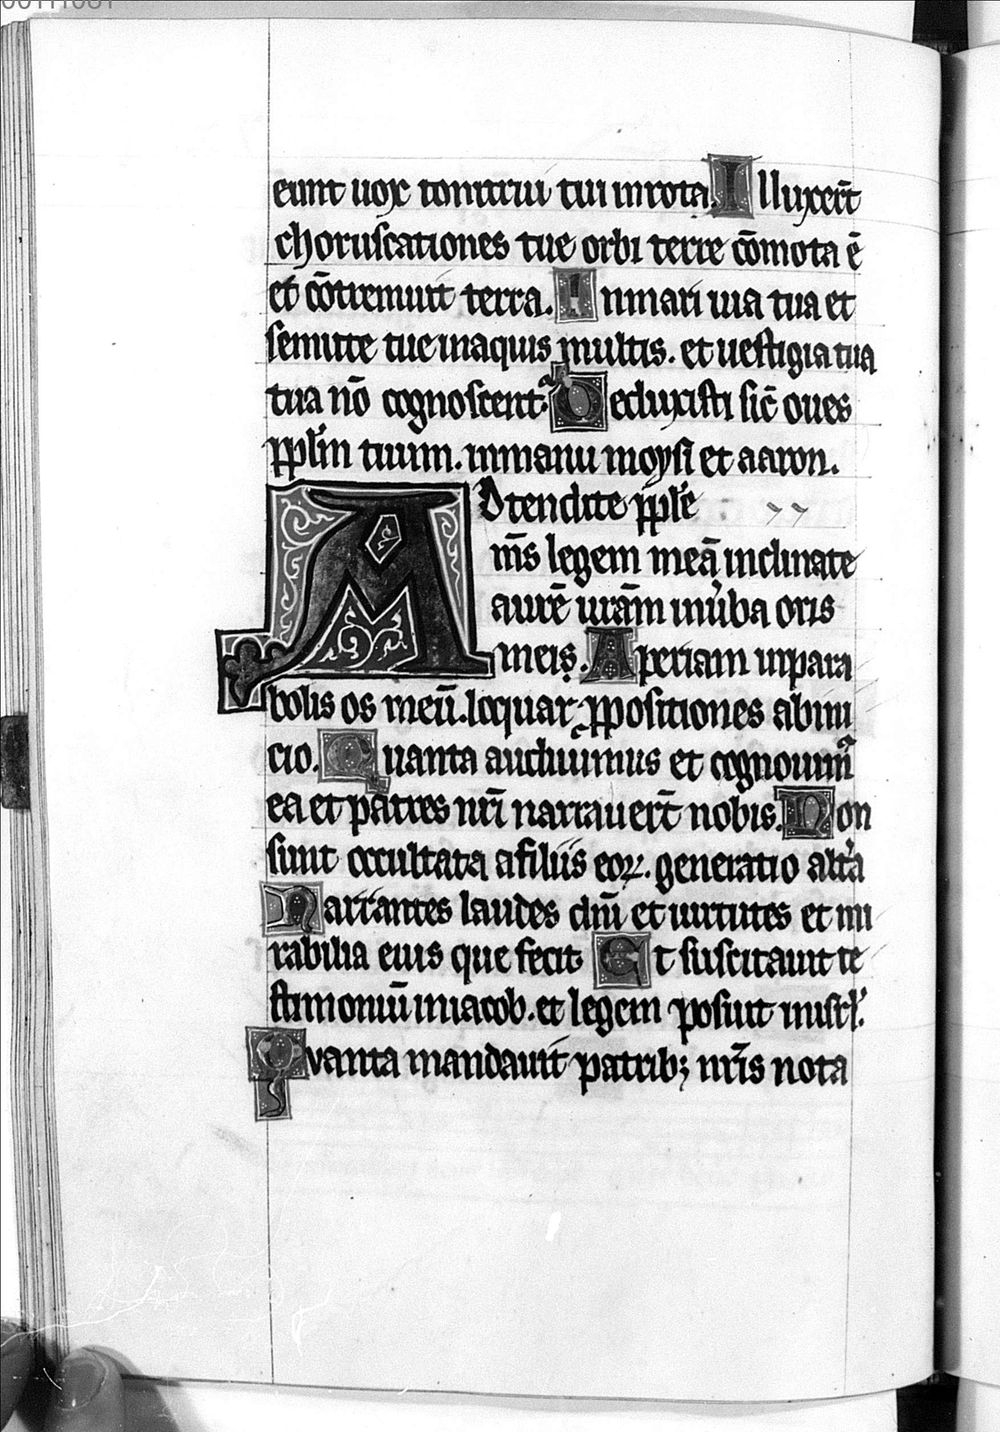 eunt uox tonitrui tui inrota. Illuxer̄t
choruscationes tue orbi terre cōmota ē
et cōtremuit terra. Inmari uia tua et
semite tue inaquis multis. et uestigia tua
tua nō cognoscent᷑. Deduxisti sic̄ oues
pp̄lm̄ tuum. inmanu moysi et aaron.
Adtendite pp̄le
m̄s legem meā inclinate
aurē ur̄am inuͥba oris
meis. Aperiam inpara
bolis os meū. loquar ꝓpositiones abini
cio. Quanta audiuimus et cognouim᷒
ea et patres nr̄i narrauer̄t nobis. Non
sunt occultata afiliis eoꝝ. generatio altͣa
Narrantes laudes dn̄i et uirtutes et mi
rabilia eius que fecit Et suscitauit te
stimoniū iniacob. et legem posuit inisrl̄.
Quanta mandauit patribꝫ nr̄is nota